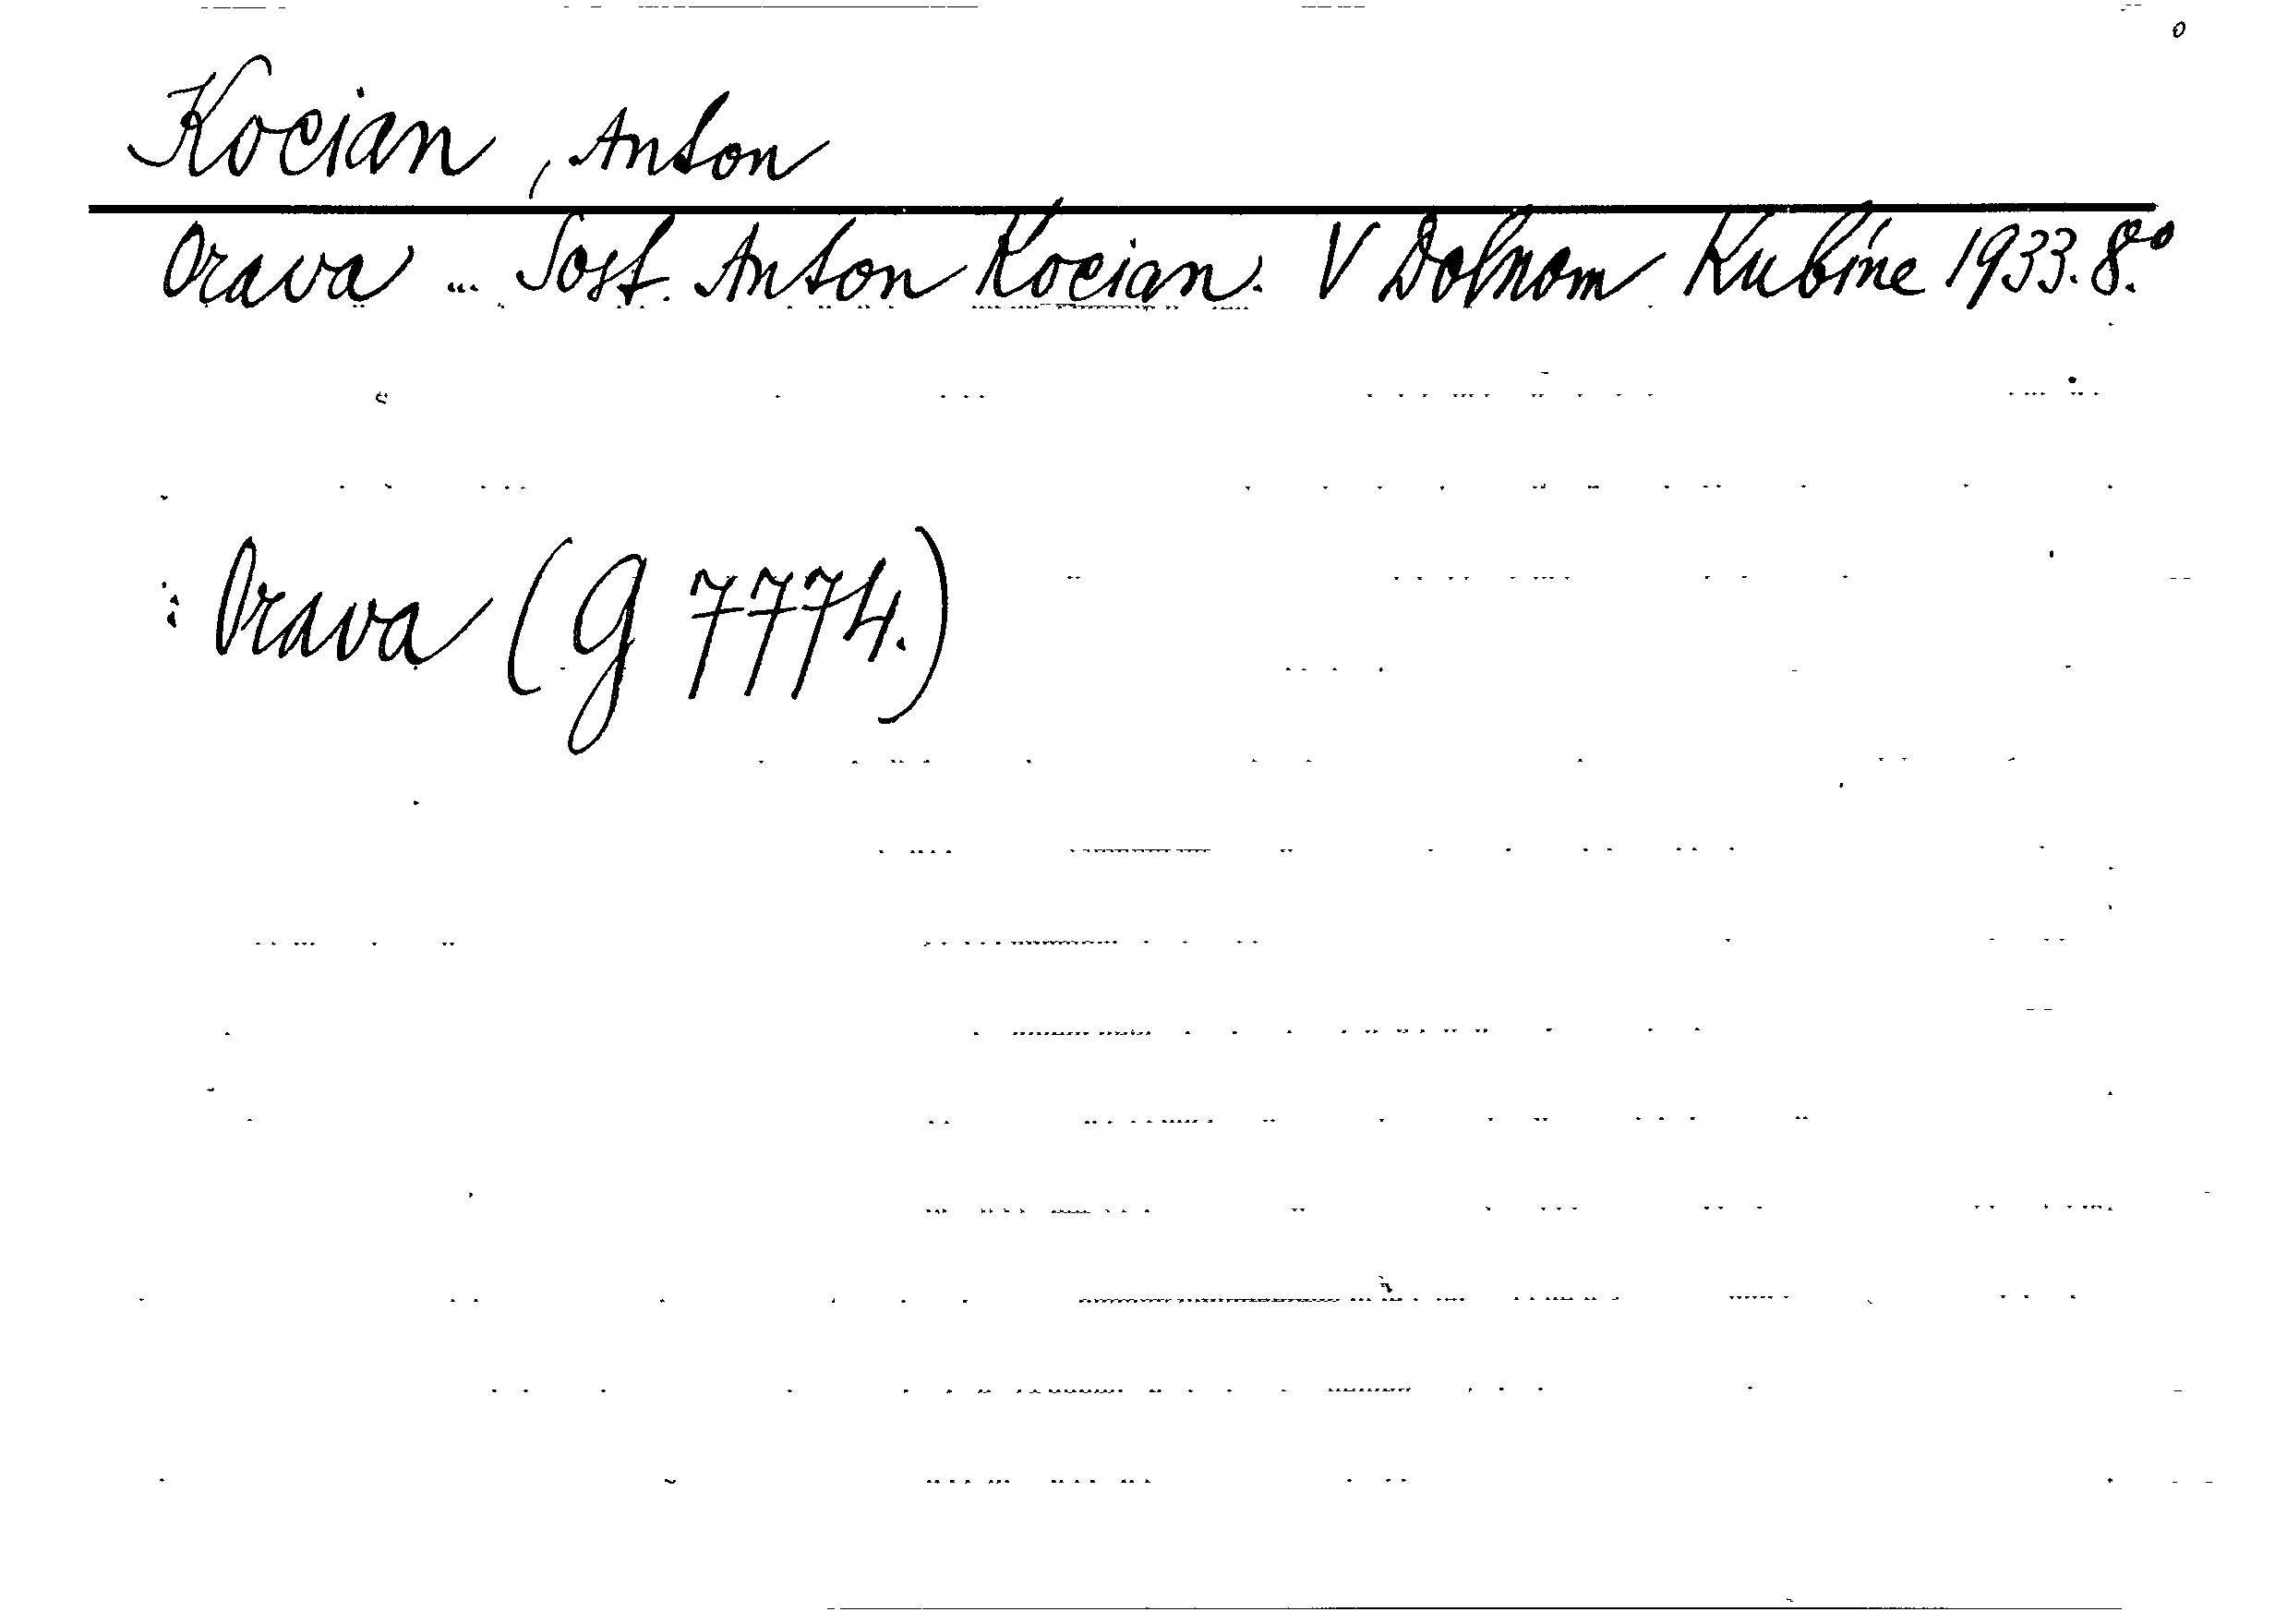 Kocian, Anton
Orava ... Sost. Anton Kocian. V Dolnom Kubíne 1933. 8.°
: Orava (G 7774.)